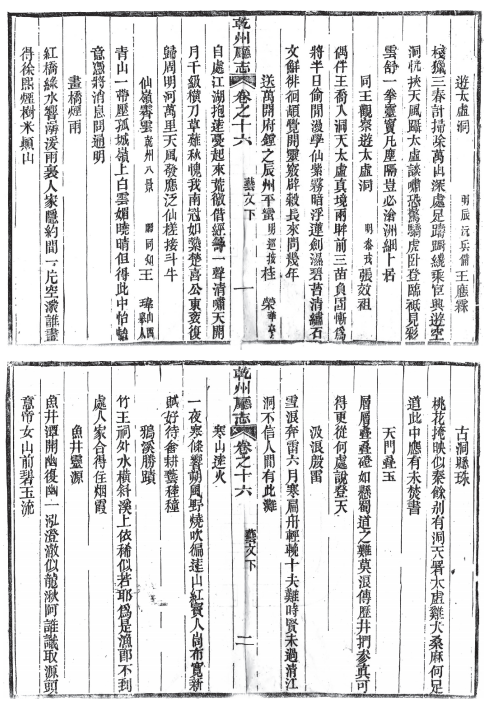 遊太虛洞
明辰沅兵備王應霖
棧獵三春計掃
萬山深處足
乘官興遊空
洞
挾天風歸太虛談嘯恐驚騎虎臥登臨祇見彩
雲舒一拳靈竇凡塵隔豈必滄洲網上居
同王觀察遊太虛洞
明
張效祖
偶伴王喬入洞天太虛真境兩眸前三苗負固慚爲
將半日偷閒漫學仙紫霧暗浮蓮劍濕碧苔清繡石
文鮮徘徊頗覺開靈竅辟穀長來問幾年
送萬開府鏜之辰州平蠻
明巡按桂榮
自處江湖抱遠憂起來荒徼借經籌一聲清嘯天開
月千級橫刀草雄秋愧我南冠如
楚喜公東
復
歸周明河萬里天風發應泛仙槎接斗牛
仙嶺霽雲
乾州八景
明同知王瑋
青山一帶壓孤城嶺上白雲媚曉晴但得此中怡
意憑將消息問通明
畫橋煙雨
紅橋綠水響潺湲雨裏人家隱約間一片空濛誰畫
得徐熙煙樹米顛山
乾州廳志
卷之十六
藝文下
一
古洞縣珠
桃花掩映似秦餘別有洞天署太虛雞犬桑麻何足
道此中應有未焚書
天門疊玉
層層疊疊磴如懸蜀道之難莫浪傳歷井捫參真可
得更從何處說登天
汲浪殷雷
雪浪奔雷六月寒扁舟輕
十夫難時賢未過清江
洞不信人間有此灘
寒山遠火
一夜寒條響朔風野燒吹徧遠山紅賓人尚布寬新
賦好待畬耕藝種穜
鴉溪勝蹟
竹王祠外水橫斜溪上依稀似若耶爲是漁郎不到
處人家合得住烟霞
魚井靈源
魚井潭開幽復幽一泓澄澈似龍湫阿誰識取源頭
意帝女山前碧玉流
乾州廳志
卷之十六
藝文下
二